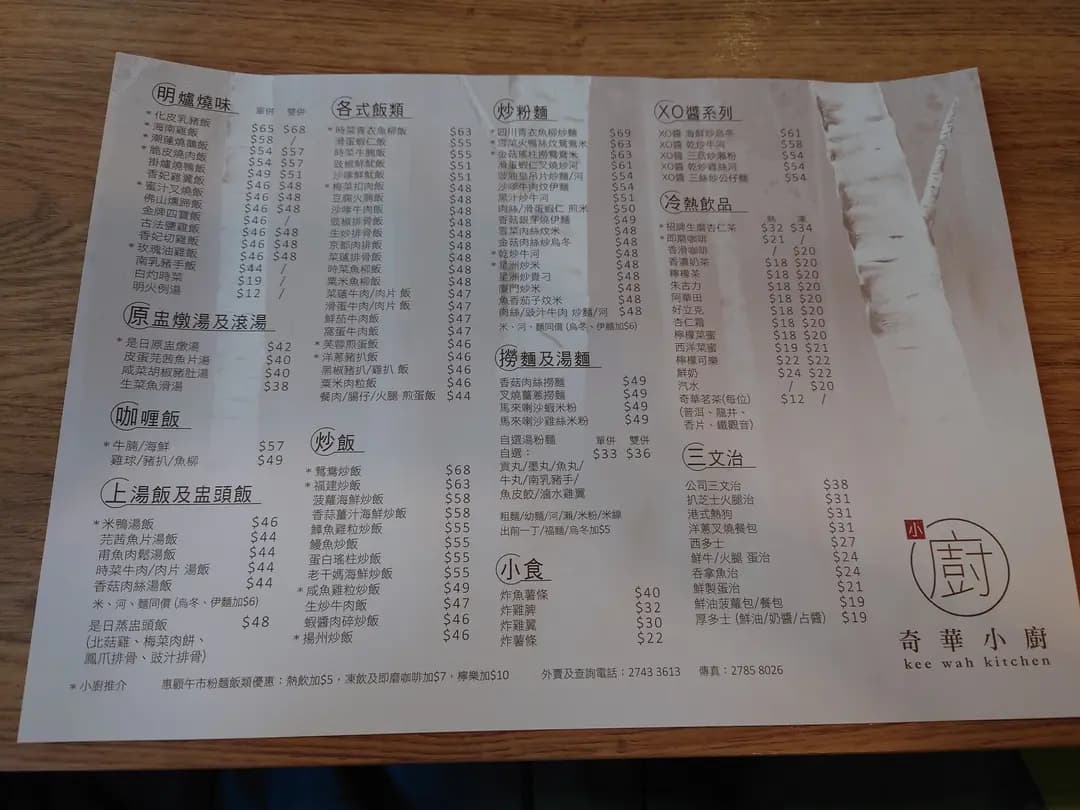 明爐燒味 單併 雙併
*化皮乳豬飯 $65 $68
*海南雞飯 $58 /
*潮蓮燒鵝飯 $54 $57
*脆皮燒肉飯 $54 $57
掛爐燒鴨飯 $49 $51
香妃雞翼飯 $46 $48
*蜜汁叉燒飯 $46 $48
佛山燻蹄飯 $46 $48
金牌四寶飯 $46 /
古法鹽雞飯 $46 $48
香妃切雞飯 $46 $48
*玫瑰油雞飯 $46 $48
南乳豬手飯 $44 /
白灼時菜 $19 /
明火例湯 $12 /
原盅燉湯及滾湯
*是日原盅燉湯 $42
皮蛋芫茜魚片湯 $40
咸菜胡椒豬肚湯 $40
生菜魚滑湯 $38
咖喱飯
*牛腩/海鮮 $57
雞球/豬扒/魚柳 $49
上湯飯及盅頭飯
*米鴨湯飯 $46
芫茜魚片湯飯 $44
甫魚肉鬆湯飯 $44
時菜牛肉/肉片 湯飯 $44
香菇肉絲湯飯 $44
米、河、麵同價 (烏冬、伊麵加$6)
是日蒸盅頭飯 $48
(北菇雞、梅菜肉餅、
鳳爪排骨、豉汁排骨)
各式飯類
*時菜青衣魚柳飯 $63
滑蛋蝦仁飯 $55
時菜牛腩飯 $55
豉椒鮮魷飯 $51
沙嗲鮮魷飯 $51
*梅菜扣肉飯 $48
豆腐火腩飯 $48
沙嗲牛肉飯 $48
豉椒排骨飯 $48
生炒排骨飯 $48
京都肉排飯 $48
菜薳排骨飯 $48
時菜魚柳飯 $48
粟米魚柳飯 $48
菜薳牛肉/肉片 飯 $47
滑蛋牛肉/肉片 飯 $47
鮮茄牛肉飯 $47
窩蛋牛肉飯 $47
*芙蓉煎蛋飯 $46
*洋蔥豬扒飯 $46
黑椒豬扒/雞扒 飯 $46
粟米肉粒飯 $46
餐肉/腸仔/火腿 煎蛋飯 $44
炒飯
*鴛鴦炒飯 $68
*福建炒飯 $63
菠蘿海鮮炒飯 $58
香蒜薑汁海鮮炒飯 $58
鱆魚雞粒炒飯 $55
鰻魚炒飯 $55
蛋白瑤柱炒飯 $55
老干媽海鮮炒飯 $55
*咸魚雞粒炒飯 $49
生炒牛肉飯 $47
蝦醬肉碎炒飯 $46
*揚州炒飯 $46
炒粉麵
*四川青衣魚柳炒麵 $69
*雪菜火鴨絲炆鴛鴦米 $63
*金菇瑤柱撈鴛鴦米 $63
滑蛋蝦仁叉燒炒河 $61
豉油皇吊片炒麵/河 $54
沙嗲牛肉炆伊麵 $54
黑汁炒牛河 $51
肉絲/滑蛋蝦仁 煎米 $50
香菇銀芽燒伊麵 $49
雪菜肉絲炆米 $48
金菇肉絲炒烏冬 $48
*乾炒牛河 $48
*星洲炒米 $48
星洲炒貴刁 $48
廈門炒米 $48
魚香茄子炆米 $48
肉絲/豉汁牛肉 炒麵/河 $48
米、河、麵同價 (烏冬、伊麵加$6)
撈麵及湯麵
香菇肉絲撈麵 $49
叉燒薑蔥撈麵 $49
馬來喇沙蝦米粉 $49
馬來喇沙雞絲米粉 $49
自選湯粉麵 單併 雙併
自選： $33 $36
貢丸/墨丸/魚丸/
牛丸/南乳豬手/
魚皮餃/滷水雞翼
粗麵/幼麵/河/瀨/米粉/米線
出前一丁/福麵/烏冬加$5
小食
炸魚薯條 $40
炸雞脾 $32
炸雞翼 $30
炸薯條 $22
XO醬系列
XO醬 海鮮炒烏冬 $61
XO醬 乾炒牛河 $58
XO醬 三菇炒瀨粉 $54
XO醬 乾炒雞絲河 $54
XO醬 三絲炒公仔麵 $54
冷熱飲品 熱 凍
*招牌生磨杏仁茶 $32 $34
*即磨咖啡 $21 /
香滑咖啡 / $20
香濃奶茶 $18 $20
檸檬茶 $18 $20
朱古力 $18 $20
阿華田 $18 $20
好立克 $18 $20
杏仁霜 $18 $20
檸檬菜蜜 $18 $20
西洋菜蜜 $19 $21
檸檬可樂 $22 $22
鮮奶 $24 $22
汽水 / $20
奇華茗茶(每位) $12 /
(普洱、龍井、
香片、鐵觀音)
三文治
公司三文治 $38
扒芝士火腿治 $31
港式熱狗 $31
洋蔥叉燒餐包 $31
西多士 $27
鮮牛/火腿 蛋治 $24
吞拿魚治 $24
鮮製蛋治 $21
鮮油菠蘿包/餐包 $19
厚多士 (鮮油/奶醬/占醬) $19
小
廚
奇華小廚
kee wah kitchen
*小廚推介 惠顧午市粉麵飯類優惠：熱飲加$5，凍飲及即磨咖啡加$7，檸樂加$10 外賣及查詢電話：2743 3613 傳真：2785 8026